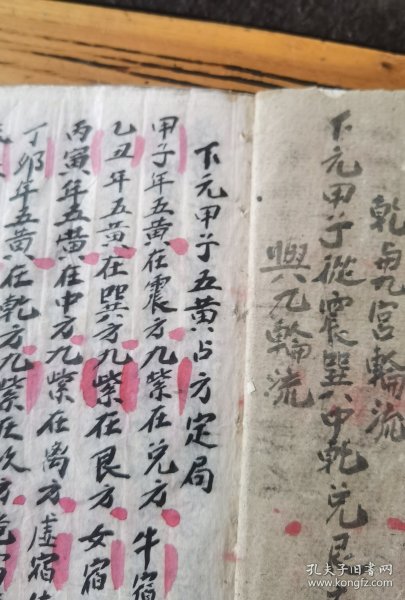 乾兑宮輪流
下元甲子從震巽中乾兑艮
與九輪流
下元甲子五黄占方定局
甲子年五黄在震方九紫在兑方牛宿
乙丑年五黄在巽方九紫在艮方女宿
丙寅年五黄在中方九紫在离方虚宿
丁卯年五黄在乾方九紫在坎方
孔夫子旧书网
www.kongfz.com